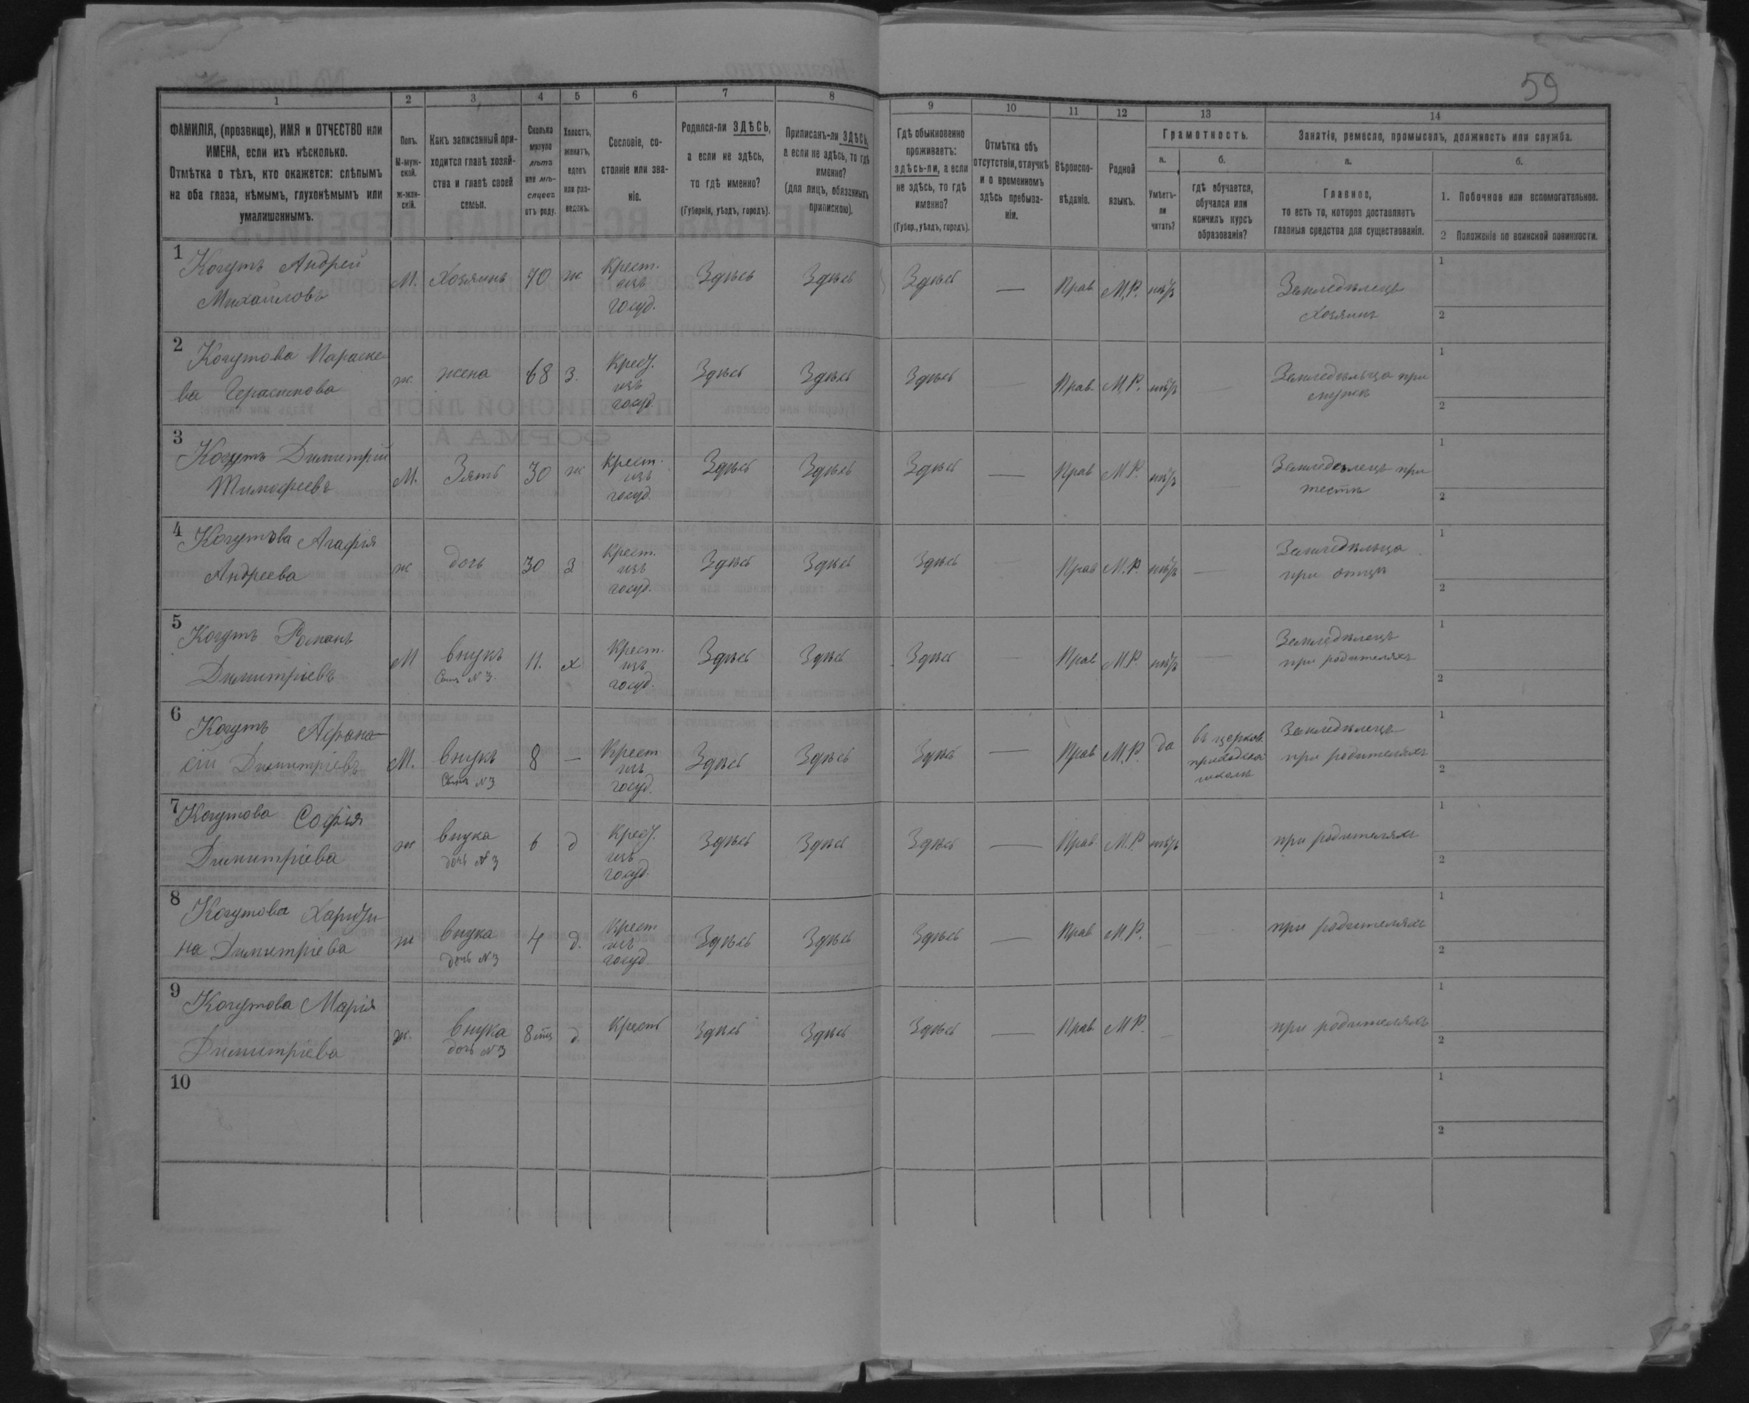 59
1 2 3 4 5 6 7 8 9 10 11 12 13 14
ФАМИЛІЯ, (прозвище), ИМЯ и ОТЧЕСТВО или
ИМЕНА, если ихъ нѣсколько.
Отмѣтка о тѣхъ, кто окажется: слѣпымъ
на оба глаза, нѣмымъ, глухонѣмымъ или
умалишоннымъ.
Полъ.
М-муж-
ской.
Ж-жен-
скій.
Какъ записанный при-
ходится главѣ хозяй-
ства и главѣ своей
семьи.
Сколько
минуло
лѣтъ
или мѣ-
сяцевъ
отъ роду.
Холостъ,
женатъ,
вдовъ
или раз-
веденъ.
Сословіе, со-
стояніе или зва-
ніе.
Родился-ли ЗДѢСЬ,
а если не здѣсь,
то гдѣ именно?
(Губернія, уѣздъ, городъ).
Приписанъ-ли ЗДѢСЬ,
а если не здѣсь, то гдѣ
именно?
(для лицъ, обязанныхъ
припискою).
Гдѣ обыкновенно
проживаетъ:
здѣсь-ли, а если
не здѣсь, то гдѣ
именно?
(Губер., уѣздъ, городъ).
Отмѣтка объ
отсутствіи, отлучкѣ
и о временномъ
здѣсь пребыва-
ніи.
Вѣроиспо-
вѣданіе.
Родной
языкъ.
Грамотность.
а.
Умѣетъ-
ли
читать?
б.
гдѣ обучается,
обучался или
кончилъ курсъ
образованія?
Занятія, ремесло, промыселъ, должность или служба.
а.
Главное,
то есть то, которое доставляетъ
главныя средства для существованія.
б.
1. Побочное или вспомогательное.
2 Положеніе по воинской повинности.
1 Когутъ Андрей
Михайловъ
М. Хозяинъ 70 ж Крест. изъ госуд. Здѣсь Здѣсь Здѣсь — Прав М.Р. нѣтъ Земледѣлецъ
хозяинъ
1
2
2 Когутова Параске-
ва Герасимова
ж жена 68 З. Крест. изъ госуд Здѣсь Здѣсь Здѣсь — Прав М.Р. нѣтъ — Земледѣлица при
мужѣ
1
2
3 Когутъ Димитрій
Тимофеевъ
М. Зять 30 ж Крест. изъ госуд. Здѣсь Здѣсь Здѣсь — Прав М.Р. нѣтъ — Земледѣлецъ при
тестѣ
1
2
4 Когутова Агафія
Андреева
ж дочь 30 З Крест. изъ госуд. Здѣсь Здѣсь Здѣсь — Прав М.Р. нѣтъ — Земледѣлица
при отцѣ
1
2
5 Когутъ Романъ
Димитріевъ
М внукъ
Сынъ № 3
11. х Крест. изъ госуд. Здѣсь Здѣсь Здѣсь — Прав М.Р. нѣтъ — Земледѣлецъ
при родителяхъ
1
2
6 Когутъ Афана-
сій Димитріевъ
М. внукъ
Сынъ № 3
8 — Крест изъ госуд. Здѣсь Здѣсь Здѣсь — Прав М.Р. да въ церков.
приходской
школѣ
Земледѣлецъ
при родителяхъ
1
2
7 Когутова Софія
Димитріева
ж внука
дочь № 3
6 д Крест. изъ госуд. Здѣсь Здѣсь Здѣсь — Прав М.Р. нѣтъ при родителяхъ
1
2
8 Когутова Харити-
на Димитріева
ж внука
дочь № 3
4 д. Крест изъ госуд. Здѣсь Здѣсь Здѣсь — Прав М.Р. — при родителяхъ
1
2
9 Когутова Марія
Димитріева
ж. внука
дочь № 3
8 мц д. Крест Здѣсь Здѣсь Здѣсь — Прав М.Р. — при родителяхъ
1
2
10
1
2